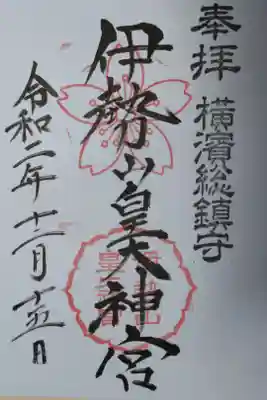 奉拝 横濱総鎮守
伊勢山皇大神宮
令和二年十二月十五日